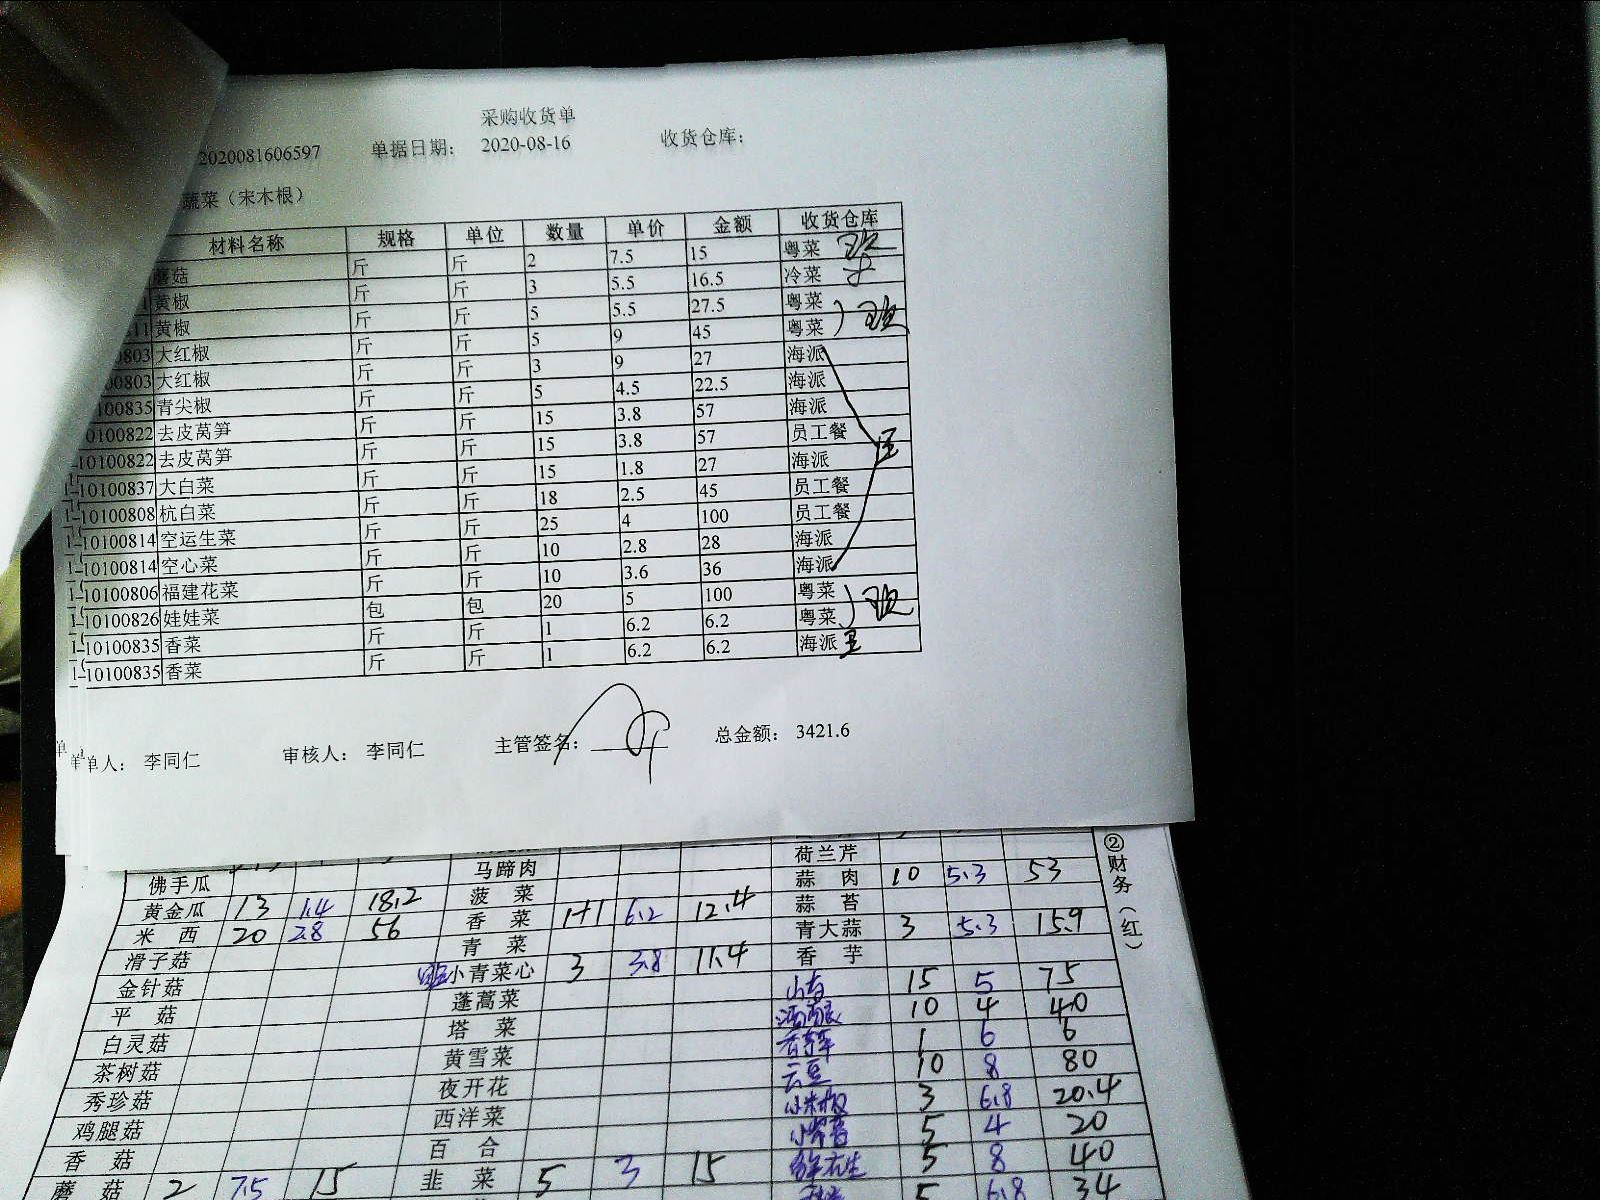 采购收货单
2020081606597 单据日期： 2020-08-16 收货仓库：
蔬菜（宋木根）
材料名称 规格 单位 数量 单价 金额 收货仓库
蘑菇 斤 斤 2 7.5 15 粤菜
黄椒 斤 斤 3 5.5 16.5 冷菜
11 黄椒 斤 斤 5 5.5 27.5 粤菜
0803 大红椒 斤 斤 5 9 45 粤菜
00803 大红椒 斤 斤 3 9 27 海派
100835 青尖椒 斤 斤 5 4.5 22.5 海派
10100822 去皮莴笋 斤 斤 15 3.8 57 海派
-10100822 去皮莴笋 斤 斤 15 3.8 57 员工餐
1-10100837 大白菜 斤 斤 15 1.8 27 海派
1-10100808 杭白菜 斤 斤 18 2.5 45 员工餐
1-10100814 空运生菜 斤 斤 25 4 100 员工餐
1-10100814 空心菜 斤 斤 10 2.8 28 海派
1-10100806 福建花菜 斤 斤 10 3.6 36 海派
1-10100826 娃娃菜 包 包 20 5 100 粤菜
1-10100835 香菜 斤 斤 1 6.2 6.2 粤菜
1-10100835 香菜 斤 斤 1 6.2 6.2 海派
单人： 李同仁 审核人： 李同仁 主管签名： 总金额： 3421.6
马蹄肉 荷兰芹
佛手瓜 菠菜 蒜肉 10 5.3 53
黄金瓜 13 1.4 18.2 香菜 1+1 6.2 12.4 蒜苔
米西 20 2.8 56 青菜 青大蒜 3 5.3 15.9
滑子菇 小青菜心 3 3.8 11.4 香芋
金针菇 蓬蒿菜 15 5 75
平菇 塔菜 10 4 40
白灵菇 黄雪菜 1 6 6
茶树菇 夜开花 云豆 10 8 80
秀珍菇 西洋菜 小米椒 3 6.8 20.4
鸡腿菇 百合 5 4 20
香菇 韭菜 5 3 15 5 8 40
蘑菇 2 7.5 15 5 6.8 34
②财务（红）